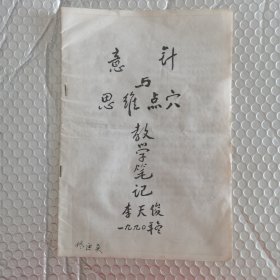 意针
与
思维点穴
教学笔记
李天俊
一九九〇年冬